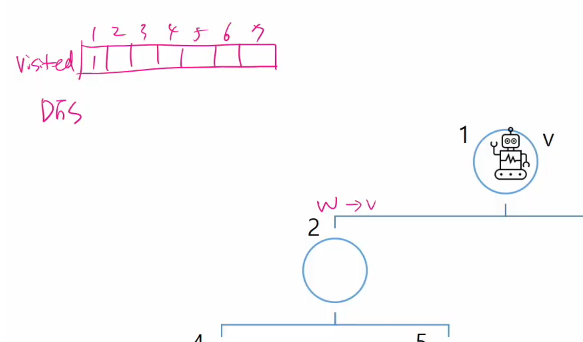 1 2 3 4 5 6 7
visited 1
DFS
1 V
W → V
2
4 5